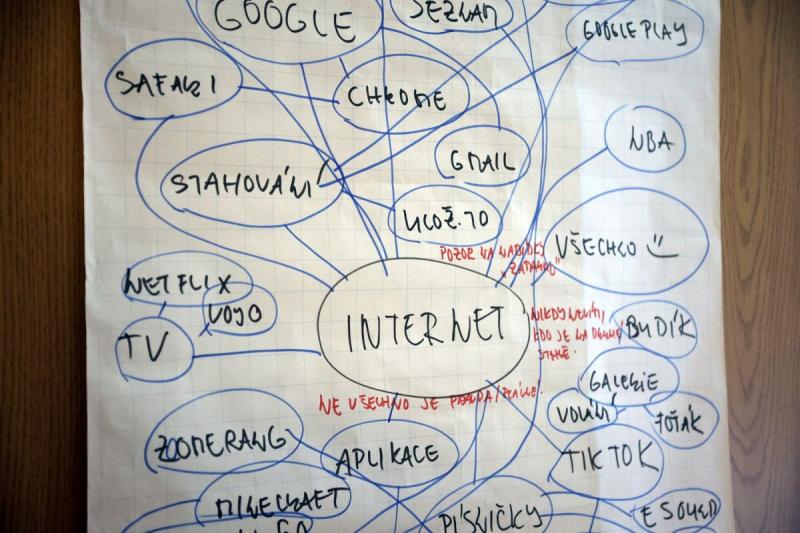 GOOGLE
SEZNAM
GOOGLE PLAY
SAFARI
CHROME
NBA
GMAIL
STAHOVÁNÍ
ULOŽ.TO
VŠECHNO
POZOR NA NABÍDKY
"ZADARMO"
NETFLIX
VOYO
INTERNET
NIKDY NEVÍŠ,
KDO JE NA DRUHÉ
STRANĚ.
BUDÍK
TV
GALERIE
NE VŠECHNO JE PRAVDA/
VOLÁNÍ
FOŤÁK
ZOOMERANG
APLIKACE
TIKTOK
MINECRAFT
PÍSNIČKY